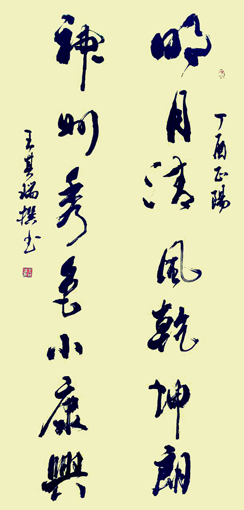 丁酉正陽
明月清風乾坤朗
神州秀色小康興
王其瑞撰书